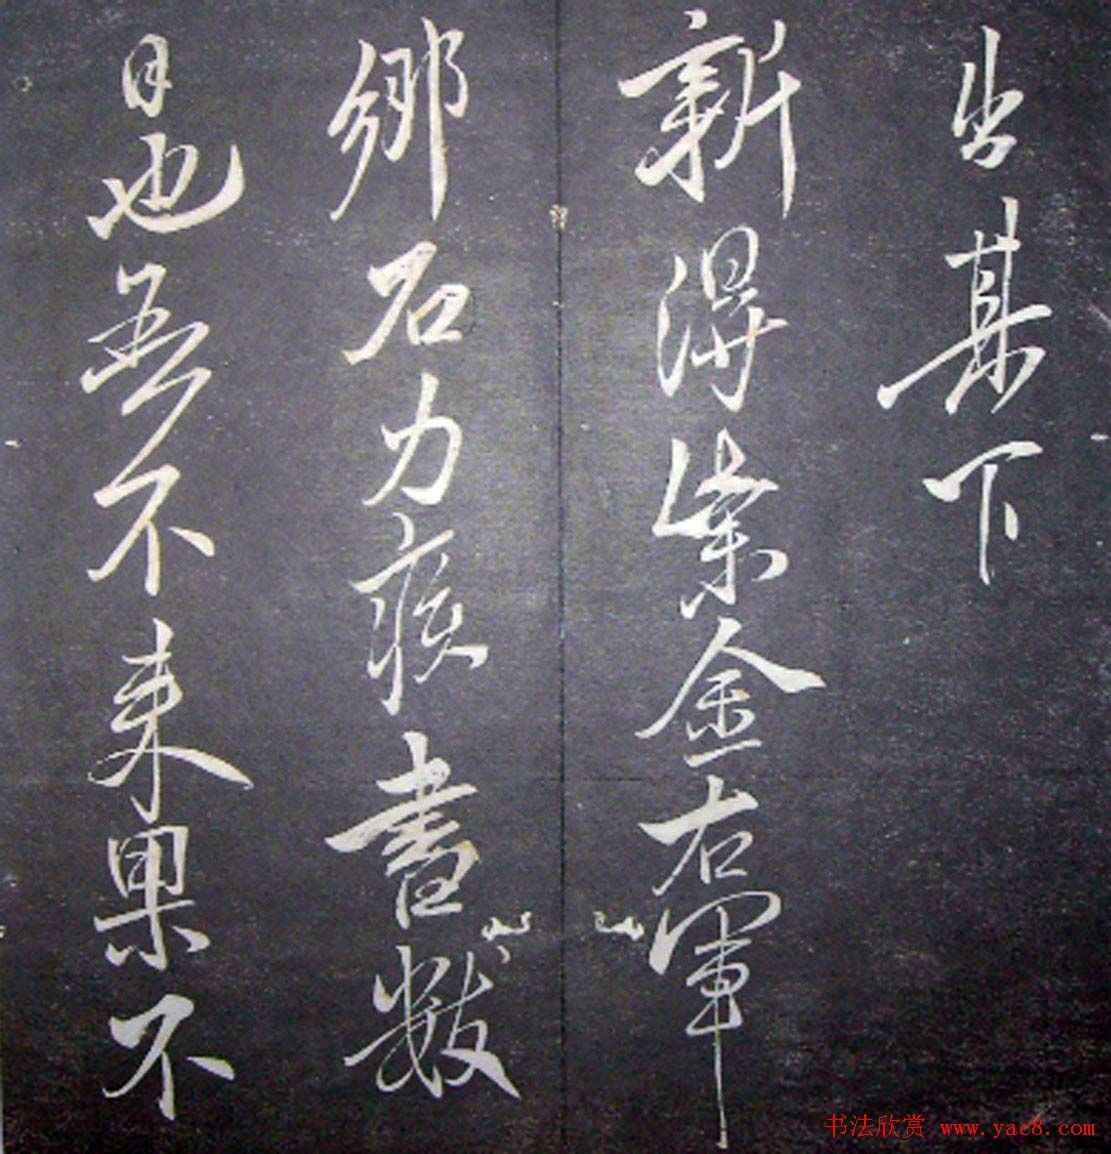 出其下
新得紫金右軍
鄉石力疾書數
日也吾不來果不
书法欣赏 www.yac8.com